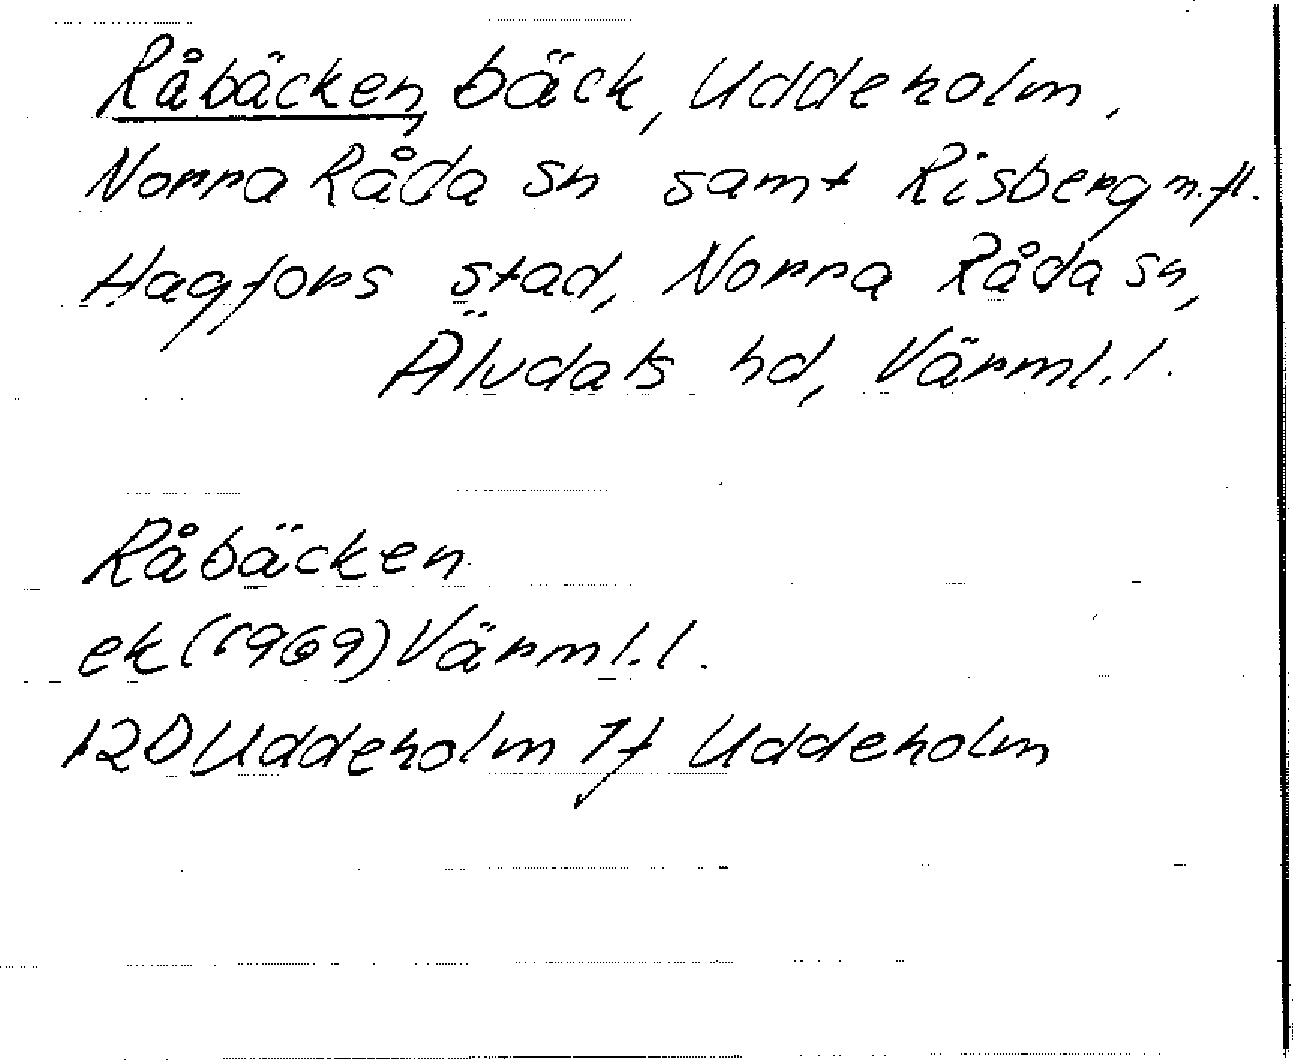 Råbäcken, bäck, Uddeholm,
Norra Råda sn samt Risberg m.fl.
Hagfors stad, Norra Råda sn,
Älvdals hd, Värml.l.
Råbäcken
ek (1969) Värml.l.
12D Uddeholm 1f Uddeholm